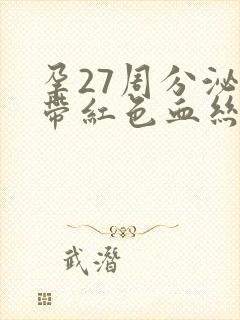 孕27周分泌
带紅色血絲
武潛